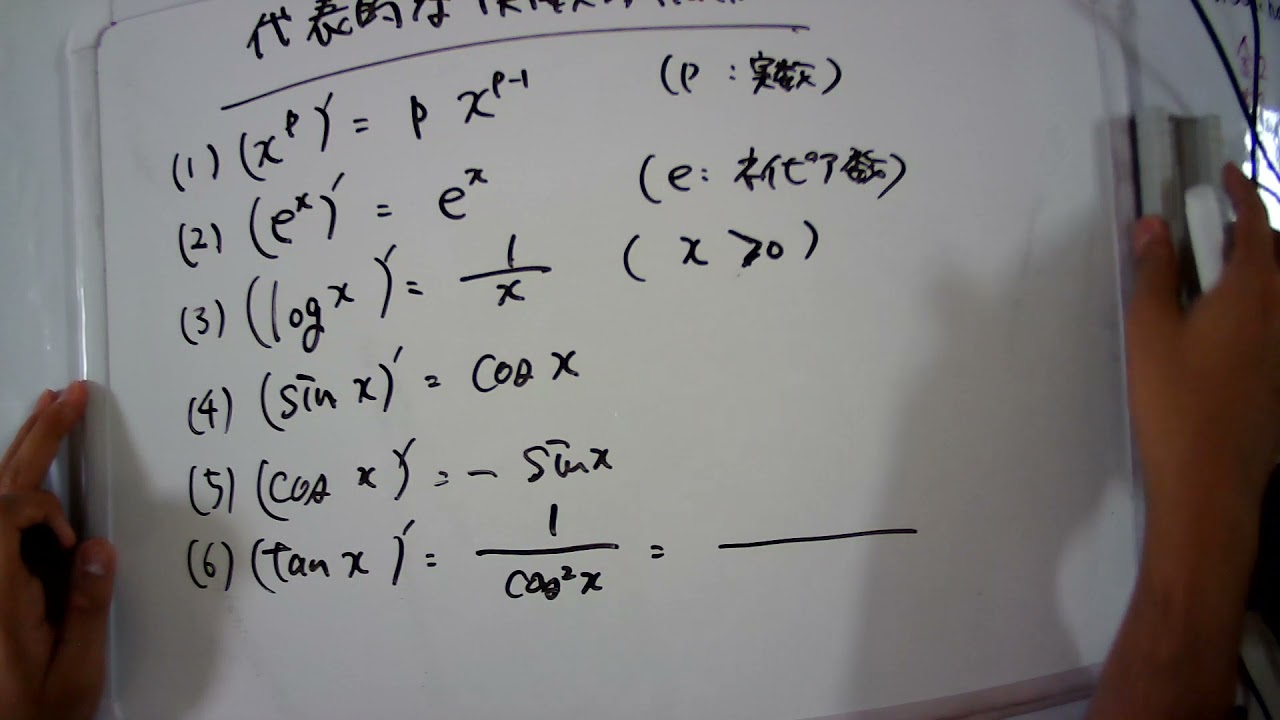 代表的な
(1) (x^p)' = p x^{p-1} (p : 実数)
(2) (e^x)' = e^x (e: ネイピア数)
(3) (log x)' = 1/x (x > 0)
(4) (sin x)' = cos x
(5) (cos x)' = - sin x
(6) (tan x)' = 1/cos²x = ―